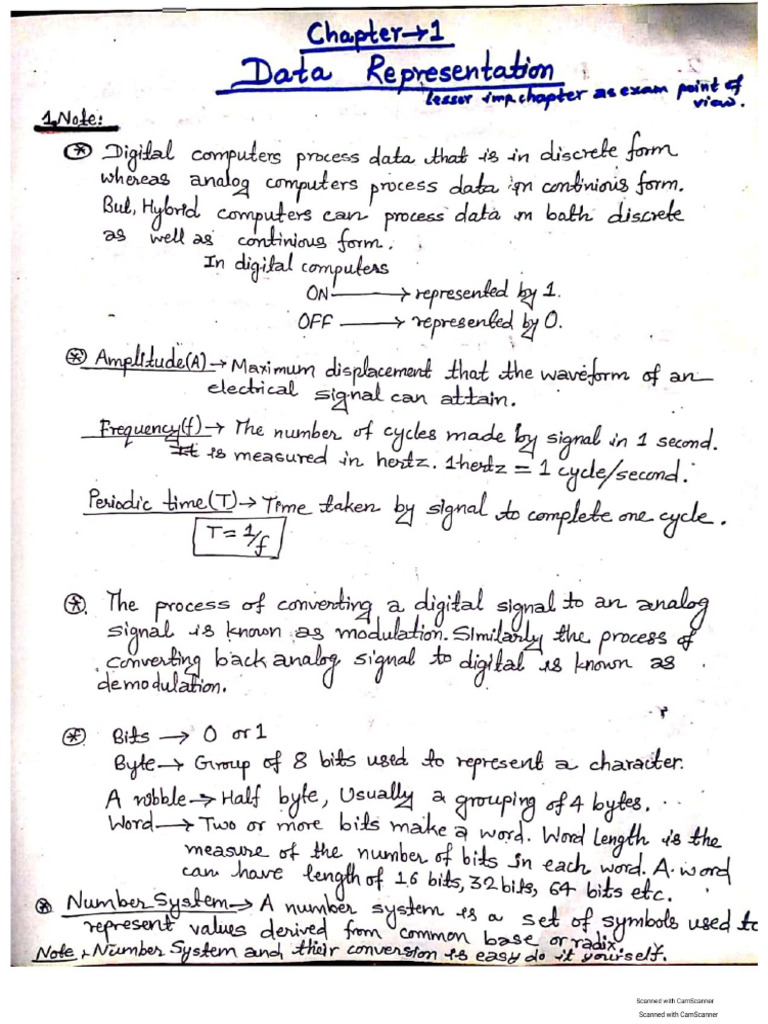 Chapter→1
Data Representation
lesser imp. chapter as exam point of
view.
1.Note:
⊛ Digital computers process data that is in discrete form
whereas analog computers process data in continious form.
But, Hybrid computers can process data in bath discrete
as well as continious form.
In digital computers
ON → represented by 1.
OFF → represented by 0.
⊛ Amplitude(A)→ Maximum displacement that the waveform of an
electrical signal can attain.
Frequency(f)→ The number of cycles made by signal in 1 second.
It is measured in hertz. 1hertz = 1 cycle/second.
Periodic time(T)→ Time taken by signal to complete one cycle.
T = 1/f
⊛. The process of converting a digital signal to an analog
signal is known as modulation. Similarly the process of
converting back analog signal to digital is known as
demodulation.
⊛. Bits → 0 or 1
Byte → Group of 8 bits used to represent a character.
A nibble → Half byte, Usually a grouping of 4 bytes.
Word → Two or more bits make a word. Word length is the
measure of the number of bits in each word. A word
can have length of 16 bits, 32 bits, 64 bits etc.
⊛ Number System → A number system is a set of symbols used to
represent values derived from common base or radix.
Note, Number System and their conversion is easy do it yourself.
Scanned with CamScanner
Scanned with CamScanner